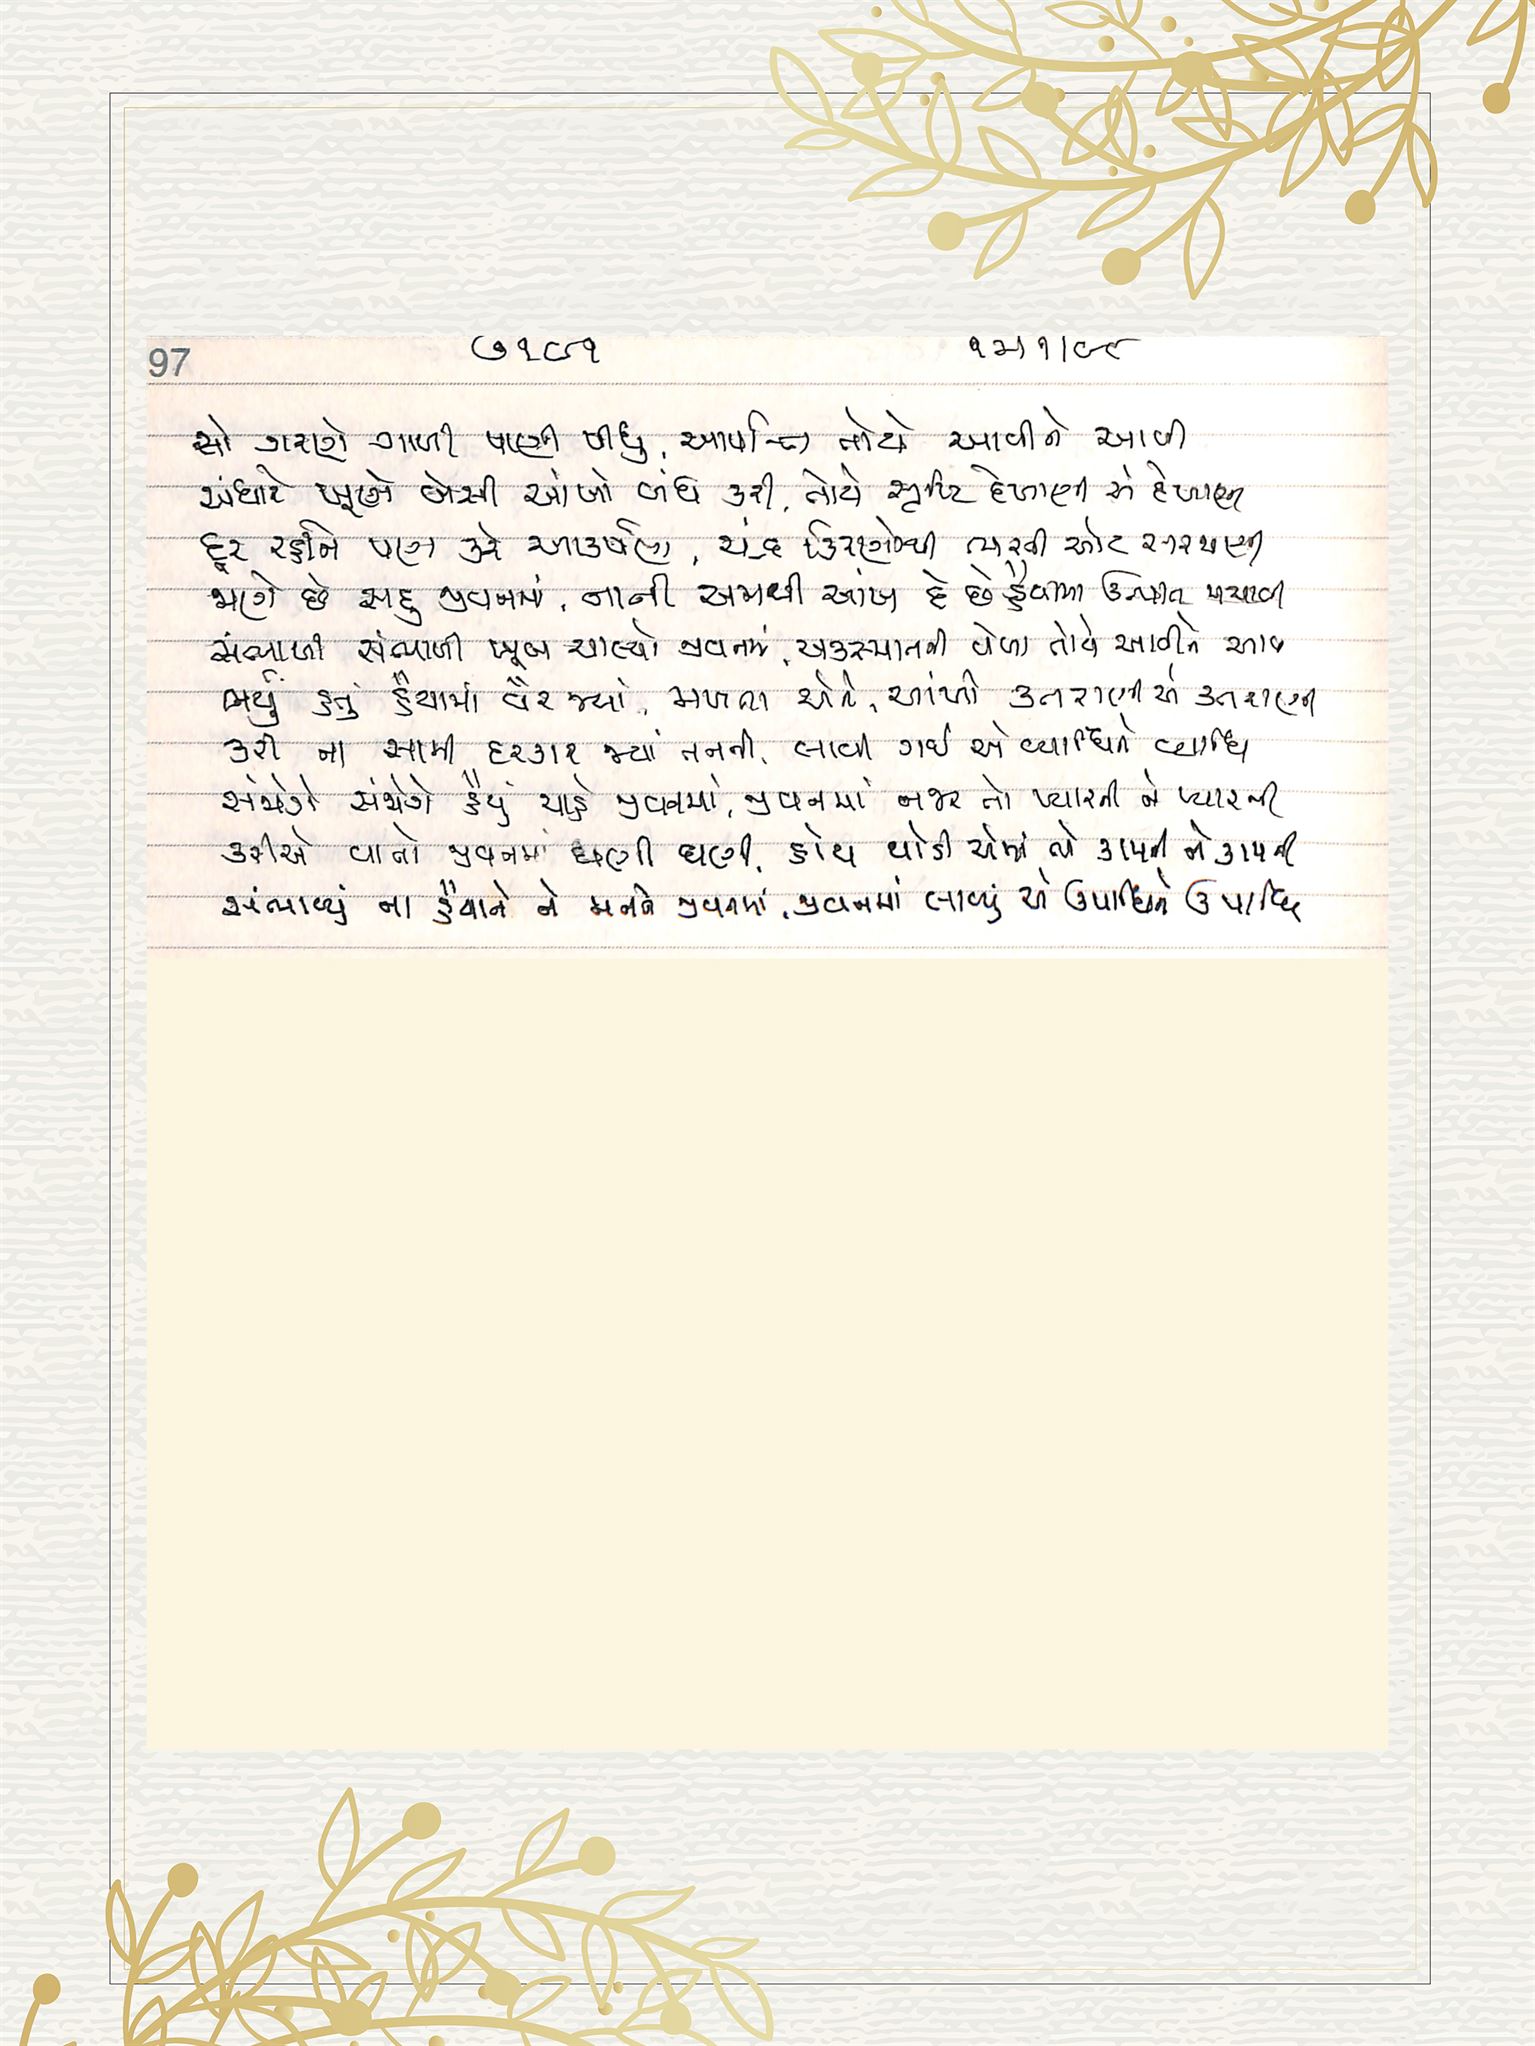 97
૭૧૯૧
સો ગરણે ગાળી પાણી પીધું, આપત્તિ તોયે આવીને આવી
અંધારે ખૂણે બેસી આંખો બંધ કરી, તોયે સૃષ્ટિ દેખાણી એ દેખાણી
દૂર રહીને પણ કરે આકર્ષણ, ચંદ્ર કિરણોથી ભરતી ઓટ સરજાણી
જાણે છે સહુ જીવનમાં, નાની અમથી આંખ દે છે હૈયામાં ઉત્પાત મચાવી
સંભાળી સંભાળી ખૂબ ચાલ્યો જીવનમાં, અકસ્માતની વેળા તોયે આવીને આવી
ભર્યું હતું હૈયામાં વૈર જ્યાં, મળતા એને, આંખો કતરાણી એ કતરાણી
કરી ના સામી દરકાર જ્યાં તનની, લાવી ગઈ એ વ્યાધિને વ્યાધિ
સંજોગે સંજોગે હૈયું ચાહે જીવનમાં, જીવનમાં નજર તો પ્યારની ને પ્યારની
કરીએ વાતો જીવનમાં ઘણી ઘણી, હોય થોડી એમાં તો કામની ને કામની
સંભાળ્યું ના હૈયાને ને મનને જીવનમાં, જીવનમાં લાવ્યું એ ઉપાધિને ઉપાધિ